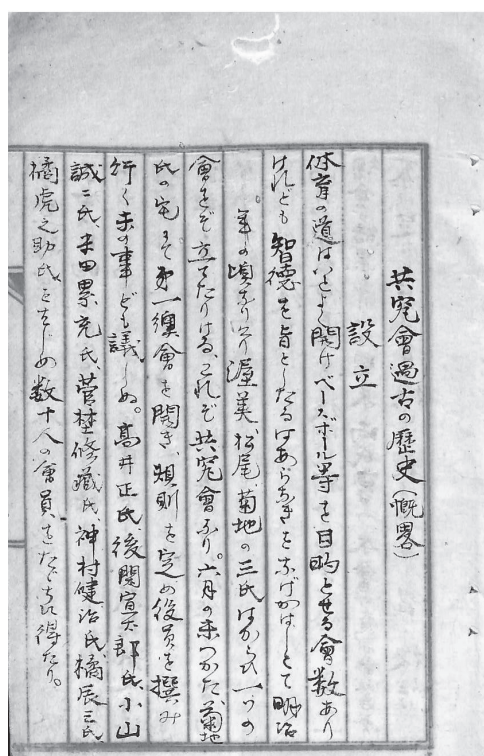 共究會過古の歴史(慨畧)
設立
体育の道はいとよく開けベースボール等を目的とせる會数あり
けれども智徳を旨としたるはあらぬをなげかはしとて明治
年の頃なり渥美、松尾、菊地の三氏はからひ一つの
會をぞ立てたりける、これぞ共究會なり。六月の末つかた、菊地
氏の宅にて第一䌫會を開き、規則を定め役員を撰み
行く末の事ども議しぬ。高井正氏、後関宣太郎氏、小山
誠二氏、来田累充氏、菅埜修蔵氏、神村健治氏、橘辰三氏、
橘虎之助氏をはじめ数十人の會員をたどち得たり。